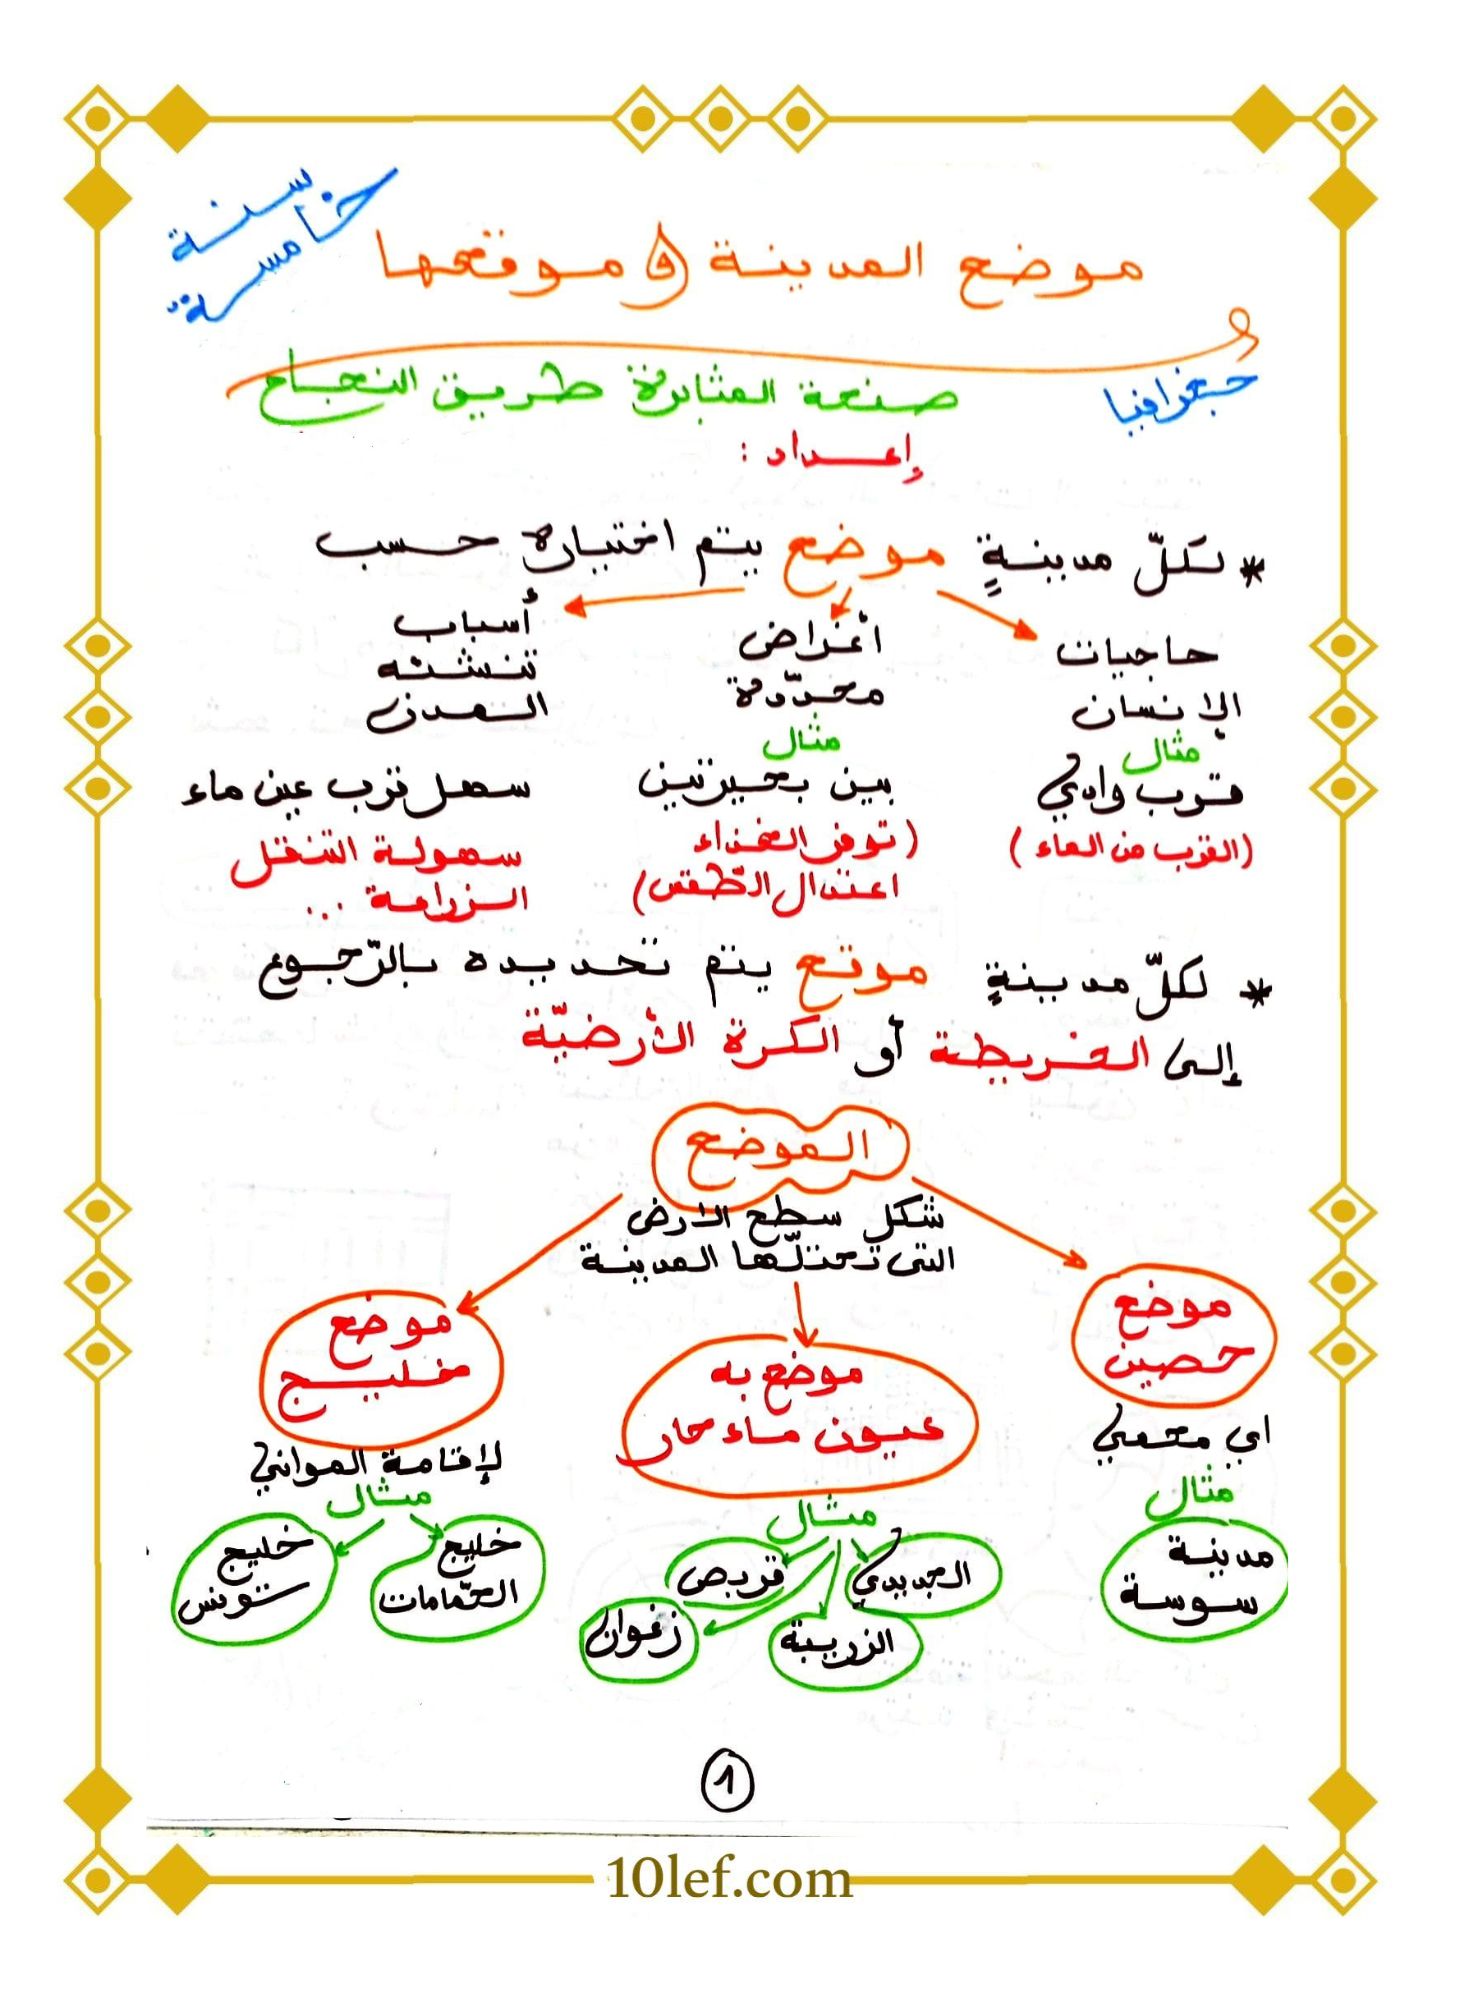 سنة
خامسة
موضع المدينة و موقعها
جغرافيا
صفحة المثابرة طريق النجاح
إعداد :
* لكلّ مدينةٍ موضع يتم اختياره حسب
حاجيات
الإنسان
مثال
قرب وادي
(القرب من الماء)
أغراض
محدّدة
مثال
بين بحيرتين
(توفر الغذاء
اعتدال الطّقس)
أسباب
تنشئه
المدن
سهل قرب عين ماء
سهولة التنقل
الزراعة ...
* لكلّ مدينةٍ موقع يتم تحديده بالرّجوع
إلى الخريطة أو الكرة الأرضيّة
الموضع
شكل سطح الارض
التي تحتلّها المدينة
موضع
حصين
اي محمي
مثال
مدينة
سوسة
موضع به
عيون ماء حار
مثال
الجديدي
قربص
الزريبة
زغوان
موضع
خليج
لإقامة الموانئ
مثال
خليج
الحمّامات
خليج
تونس
1
10lef.com